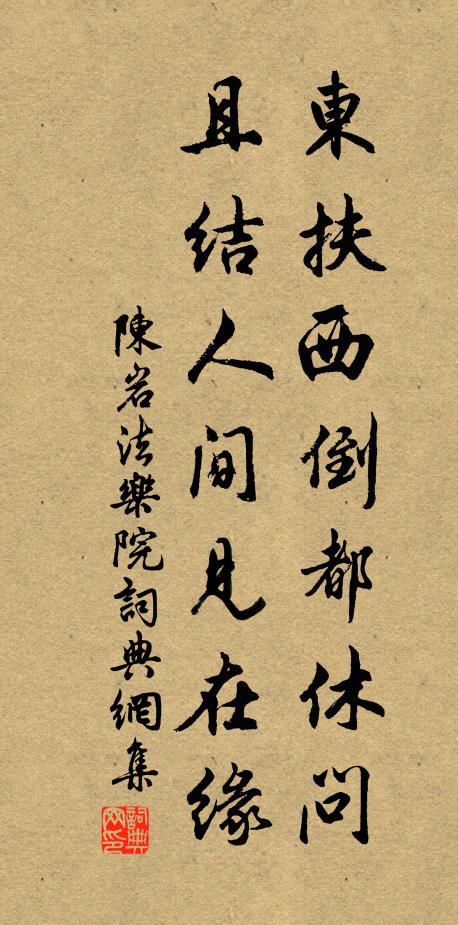 東扶西倒都休問
且結人間見在緣
陳岩法樂院詞典網集
詞典網印